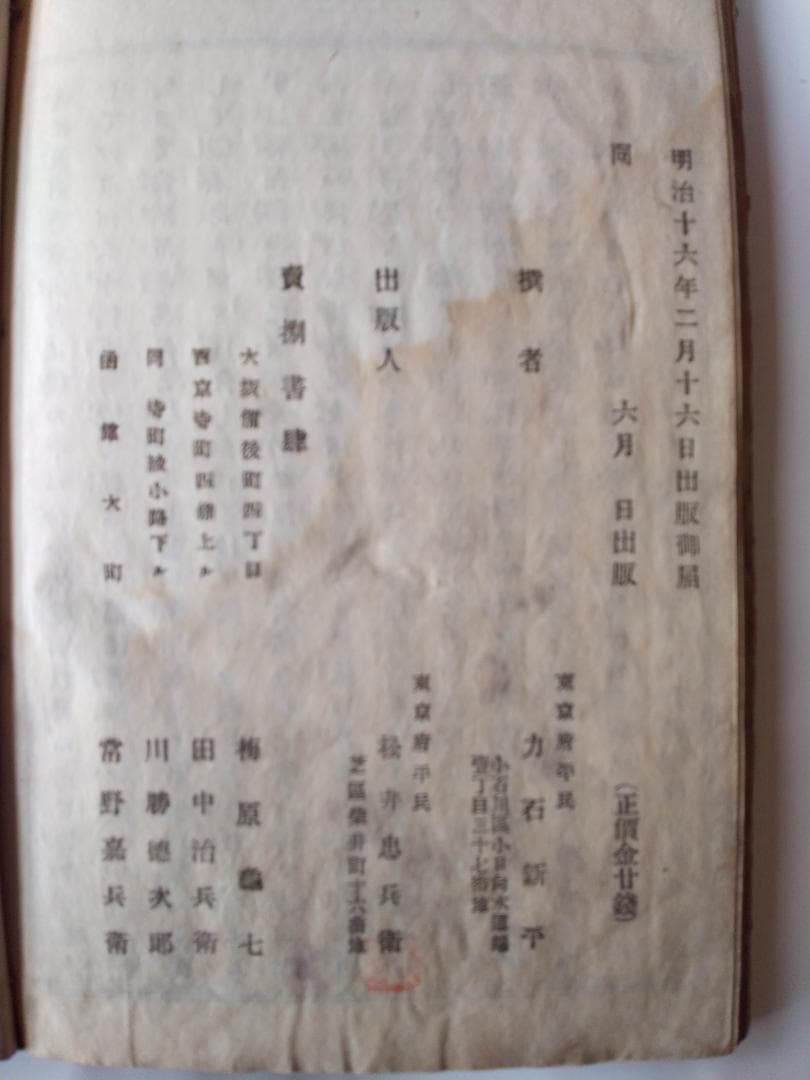 明治十六年二月十六日出版御届
同 六月 日出版
(正價金廿錢)
撰者
東京府平民
力石新平
小石川區小日向水道端
壹丁目三十七番地
出版人
東京府平民
松井忠兵衛
芝區柴井町十六番地
賣捌書肆
大坂備後町四丁目 梅原龜七
西京寺町四條上ル 田中治兵衛
同寺町綾小路下ル 川勝德次郎
函館大町 常野嘉兵衛